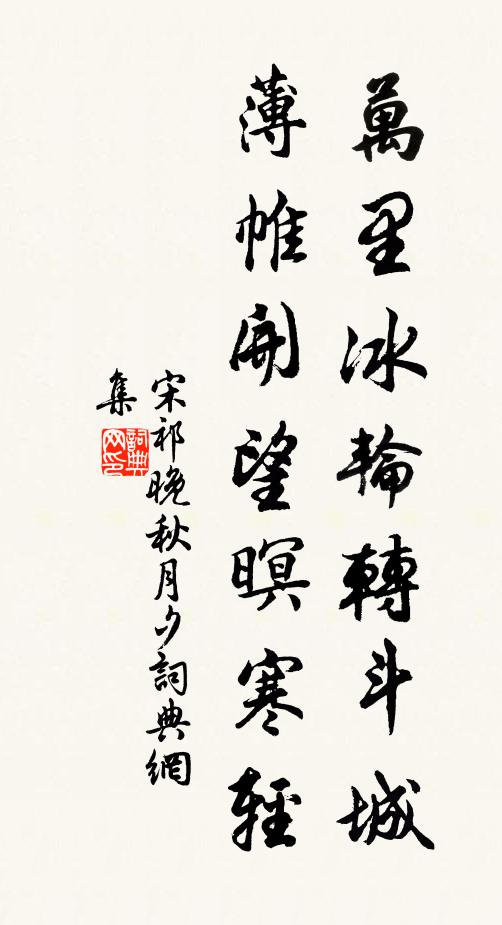 萬里冰輪轉斗城
薄帷開望暝寒輕
宋祁晚秋月夕詞典網
集
詞典网印